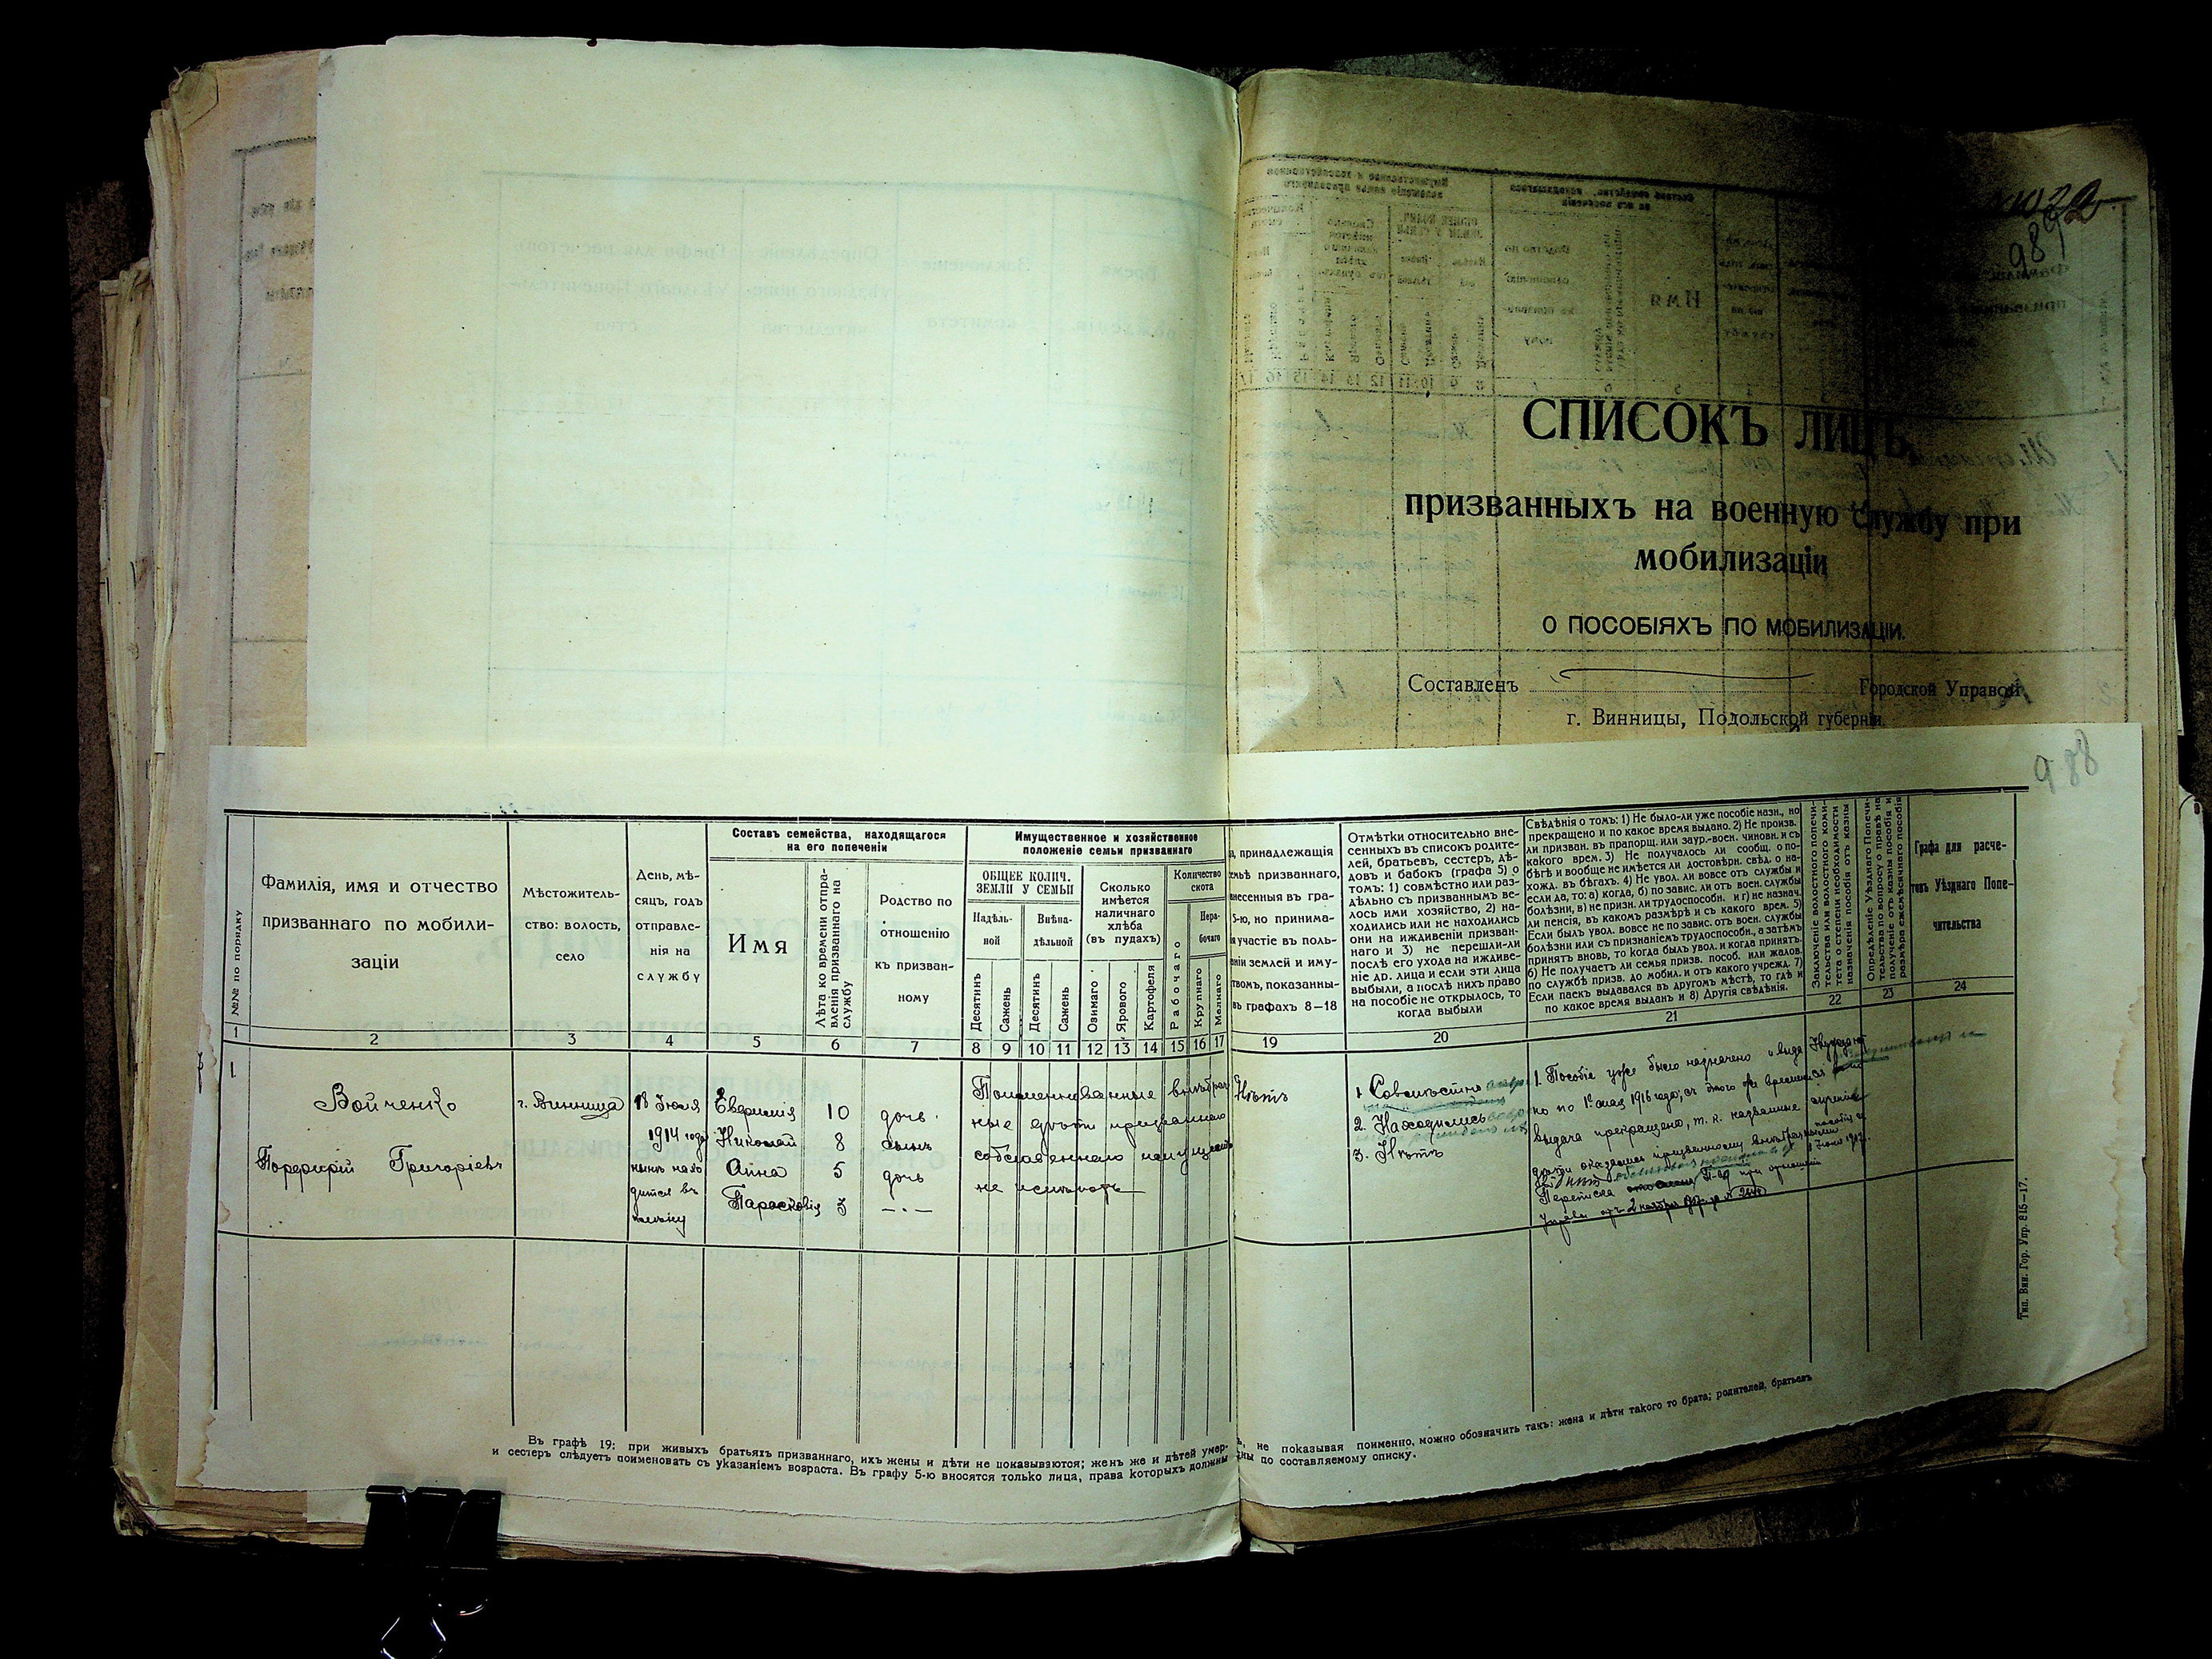 989
СПИСОКЪ ЛИЦЪ,
призванныхъ на военную службу при
мобилизаціи
О ПОСОБІЯХЪ ПО МОБИЛИЗАЦІИ.
Составленъ Городской Управой
г. Винницы, Подольской губерніи.
988
№№ по порядку
Фамилія, имя и отчество
призваннаго по мобили-
заціи
Мѣстожитель-
ство: волость,
село
День, мѣ-
сяцъ, годъ
отправле-
нія на
службу
Составъ семейства, находящагося
на его попеченіи
Имя
Лѣта ко времени отпра-
вленія призваннаго на
службу
Родство по
отношенію
къ призван-
ному
Имущественное и хозяйственное
положеніе семьи призваннаго
ОБЩЕЕ КОЛИЧ.
ЗЕМЛИ У СЕМЬИ
Надѣль-
ной
Внѣна-
дѣльной
Десятинъ
Сажень
Десятинъ
Сажень
Сколько
имѣется
наличнаго
хлѣба
(въ пудахъ)
Озимаго
Ярового
Картофеля
Количество
скота
Рабочаго
Нера-
бочаго
Крупнаго
Мелкаго
а, принадлежащія
семьѣ призваннаго,
внесенныя въ гра-
5-ю, но принима-
я участіе въ поль-
ніи землей и иму-
твомъ, показанны-
въ графахъ 8—18
Отмѣтки относительно вне-
сенныхъ въ список родите-
лей, братьевъ, сестеръ, дѣ-
довъ и бабокъ (графа 5) о
томъ: 1) совмѣстно или раз-
дѣльно съ призваннымъ ве-
лось ими хозяйство, 2) на-
ходились или не находились
они на иждивеніи призван-
наго и 3) не перешли-ли
послѣ его ухода на иждиве-
ніе др. лица и если эти лица
выбыли, а послѣ нихъ право
на пособіе не открылось, то
когда выбыли
Свѣдѣнія о томъ: 1) Не было-ли уже пособіе назн., но
прекращено и по какое время выдано. 2) Не произв.
ли призван. въ прапорщ. или заур.-воен. чиновн. и съ
какого врем. 3) Не получалось ли сообщ. о по-
бѣгѣ и вообще не имѣется ли достовѣрн. свѣд. о на-
хожд. въ бѣгахъ. 4) Не увол. ли вовсе отъ службы и
если да, то: а) когда, б) по завис. ли отъ воен. службы
болѣзни, в) не призн. ли трудоспособн. и г) не назнач.
ли пенсія, въ какомъ размѣрѣ и съ какого врем. 5)
Если былъ увол. вовсе не по завис. отъ воен. службы
болѣзни или съ признаніемъ трудоспособн., а затѣмъ
принятъ вновь, то когда былъ увол. и когда принятъ.
6) Не получаетъ ли семья призв. пособ. или жалов.
по службѣ призв. до мобил. и отъ какого учрежд. 7)
Если паекъ выдавался въ другомъ мѣстѣ, то гдѣ и
по какое время выданъ и 8) Другія свѣдѣнія.
Заключеніе волостного попечи-
тельства или волостного коми-
тета о степени необходимости
назначенія пособія отъ казны
Опредѣленіе Уѣзднаго Попечи-
тельства по вопросу о правѣ на
полученіе отъ казны пособія и
размѣра ежемѣсячнаго пособія
Графа для расче-
товъ Уѣзднаго Попе-
чительства
1 2 3 4 5 6 7 8 9 10 11 12 13 14 15 16 17 19 20 21 22 23 24
1.
Войченко
Порфирій Григоріевъ
г. Винница
18 Іюля
1914 года
нынѣ нахо
дится въ
плѣну
Евдокія 10 дочь
Николай 8 сынъ
Анна 5 дочь
Парасковія 3 —·—
Поименованные внѣбрач
ные дѣти призваннаго
собственнаго имуществ
не имѣютъ
Нѣтъ
1. Совмѣстно
2. Находились
3. Нѣтъ
1. Пособіе уже было назначено и выда
но по 1е мая 1916 года, съ этого же времени
выдача прекращена, т. к. названные
дѣти оказались призванному внѣбрачными
Переписка при отношеніи
Управы отъ 2 ноября
Нуждается
Тип. Вин. Гор. Упр. 815—17.
Въ графѣ 19: при живыхъ братьяхъ призваннаго, ихъ жены и дѣти не показываются; женъ же и дѣтей умер- ъ, не показывая поименно, можно обозначить такъ: жена и дѣти такого то брата; родителей, братьевъ
и сестеръ слѣдуетъ поименовать съ указаніемъ возраста. Въ графу 5-ю вносятся только лица, права которыхъ должны ны по составляемому списку.